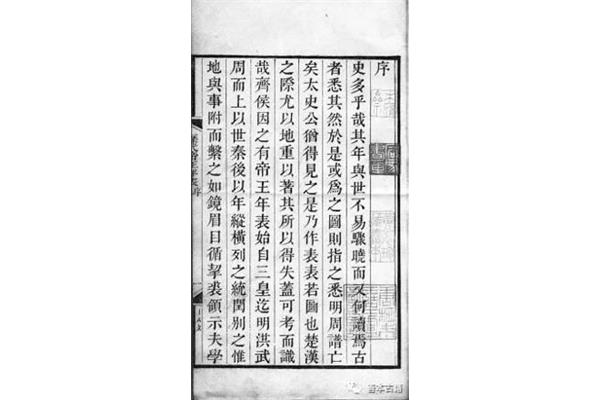 序
史多乎哉其年與世不易驟曉而又何讀焉古
者悉其然於是或爲之圖則指之悉明周譜亡
矣太史公猶得見之是乃作表表若圖也楚漢
之際尤以地重以著其所以得失蓋可考而識
哉齊侯因之有帝王年表始自三皇迄明洪武
周而上以世秦後以年縱橫列之統閏別之惟
地與事附而繫之如鏡眉目循挈裘領示夫學
善本古籍